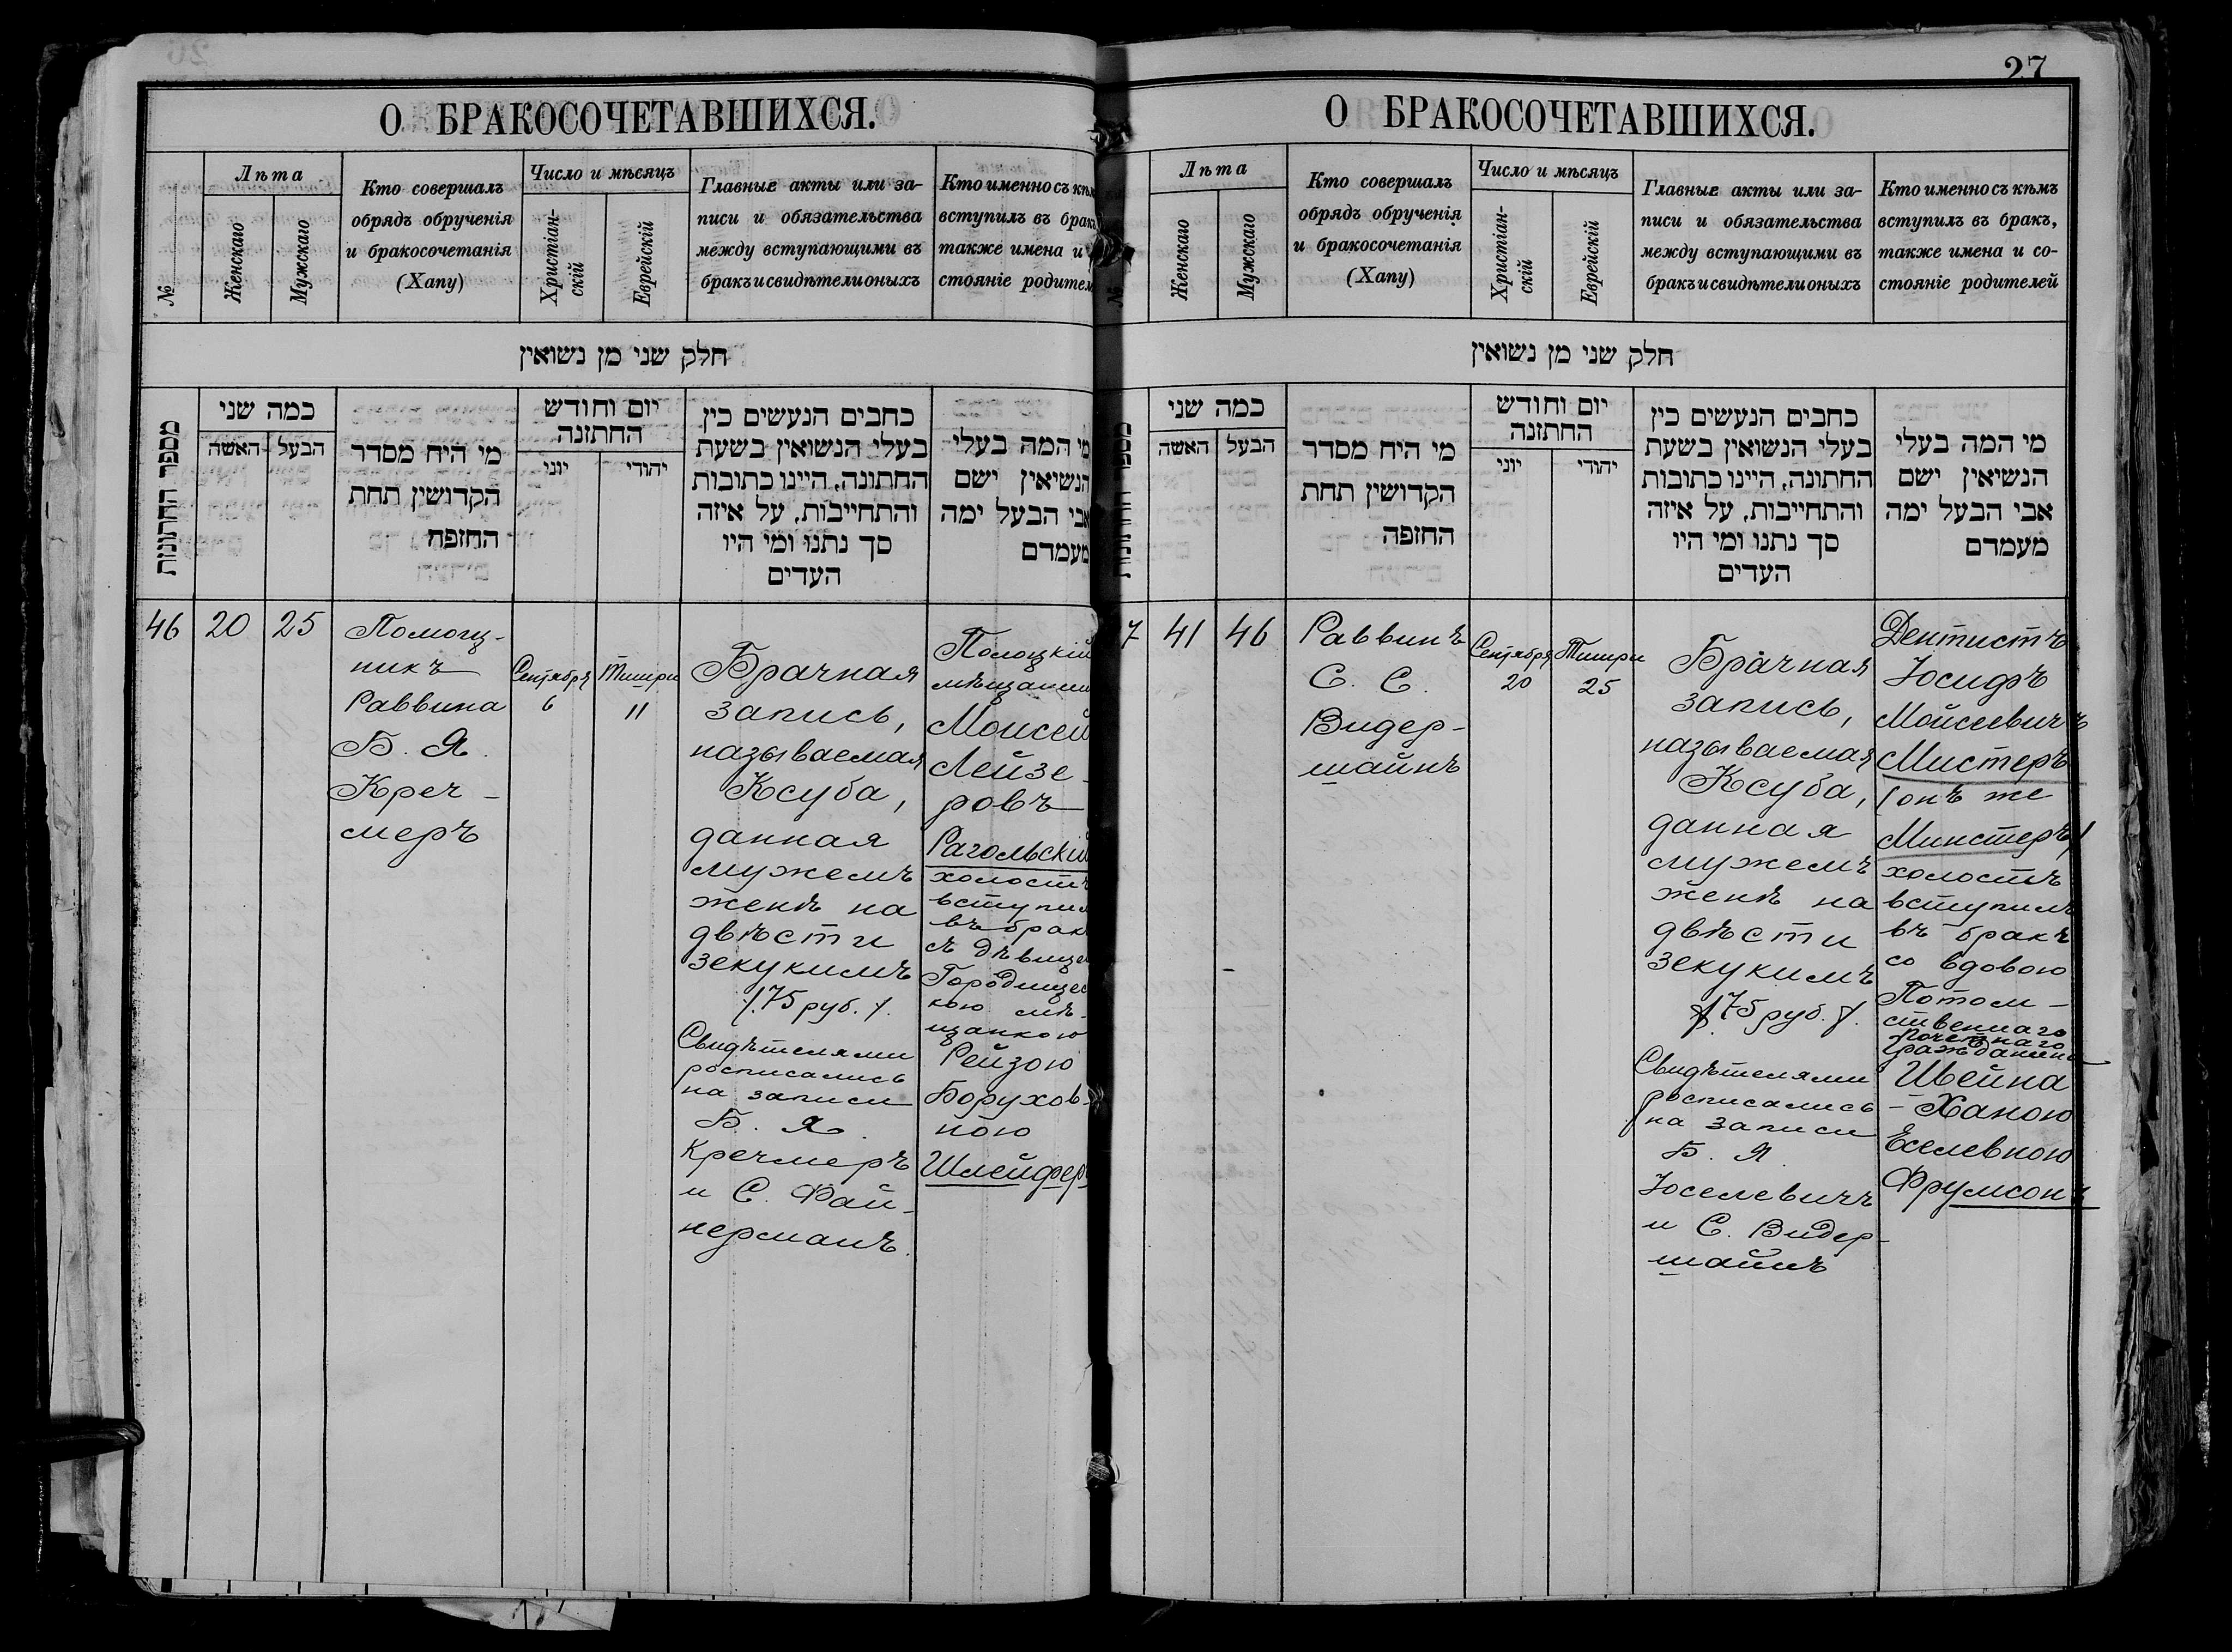 О БРАКОСОЧЕТАВШИХСЯ.
№
Лѣта
Женскаго
Мужскаго
Кто совершалъ
обрядъ обрученія
и бракосочетанія
(Хапу)
Число и мѣсяцъ
Христіан-
скій
Еврейскій
Главные акты или за-
писи и обязательства
между вступающими въ
бракъ и свидѣтели оныхъ
Кто именно съ кѣм
вступилъ въ брак
также имена и
стояніе родител
חלק שני מן נשואין
מספר החתונות
כמה שני
האשה
הבעל
מי היח מסדר
הקדושין תחת
החופח
יום וחודש
החתונה
יוני
יהודי
כתבים הנעשים כין
בעלי הנשואין בשעת
החתונה, היינו כתובות
והתחייבות, על איזה
סך נתנו ומי היו
העדים
מי המה בעלי
הנשיאין ישם
אבי הבעל ימה
מעמדם
46
20
25
Помощ-
никъ
Раввина
Б. Я.
Креч-
меръ
Сентября
6
Тишри
11
Брачная
запись,
называемая
Ксуба,
данная
мужемъ
женѣ на
двѣсти
зекукимъ
/.75 руб./.
Свидѣтелями
росписались
на записи
Б. Я.
Кречмеръ
и С. Фай-
нерманъ.
Полоцкій
мѣщанин
Моисей
Лейзе-
ровъ
Рагольскій
холостъ
вступил
въ брак
съ дѣвицею
Городищес
кою мѣ-
щанкою
Рейзою
Борухов-
ною
Шлейфер
27
О БРАКОСОЧЕТАВШИХСЯ.
№
Лѣта
Женскаго
Мужскаго
Кто совершалъ
обрядъ обрученія
и бракосочетанія
(Хапу)
Число и мѣсяцъ
Христіан-
скій
Еврейскій
Главные акты или за-
писи и обязательства
между вступающими въ
бракъ и свидѣтели оныхъ
Кто именно съ кѣмъ
вступилъ въ бракъ,
также имена и со-
стояніе родителей
חלק שני מן נשואין
כמה שני
האשה
הבעל
מי היח מסדר
הקדושין תחת
החופה
יום וחודש
החתונה
יוני
יהודי
כתבים הנעשים כין
בעלי הנשואין בשעת
החתונה, היינו כתובות
והתחייבות, על איזה
סך נתנו ומי היו
העדים
מי המה בעלי
הנשיאין ישם
אבי הבעל ימה
מעמדם
7
41
46
Раввинъ
С. С.
Видер-
шайнъ
Сентября
20
Тишри
25
Брачная
запись,
называемая
Ксуба,
данная
мужемъ
женѣ на
двѣсти
зекукимъ
/.75 руб./.
Свидѣтелями
росписались
на записи
Б. Я.
Іоселевичъ
и С. Видер-
шайнъ
Дентистъ
Іосифъ
Мойсеевичъ
Мистеръ
/онъ же
Минстеръ/
холостъ
вступилъ
въ бракъ
со вдовою
Потом-
ственнаго
почетнаго
гражданина
Шейна
-Ханою
Еселевною
Фрумсонъ